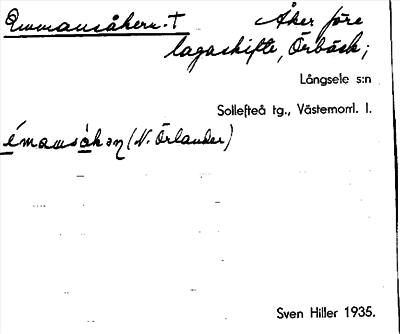 Emmansåkern. † Åker före
lagaskifte, Örbäck;
Långsele s:n
Sollefteå tg., Västemorrl. l.
émansåkən (N. Örlander)
Sven Hiller 1935.